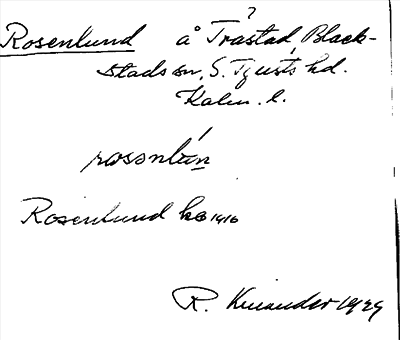 ?
Rosenlund å Trästad, Black-
stads sn, S. Tjusts hd.
Kalm. l.
rosənlun
Rosenlund kB 1910
R. Kinander 1929